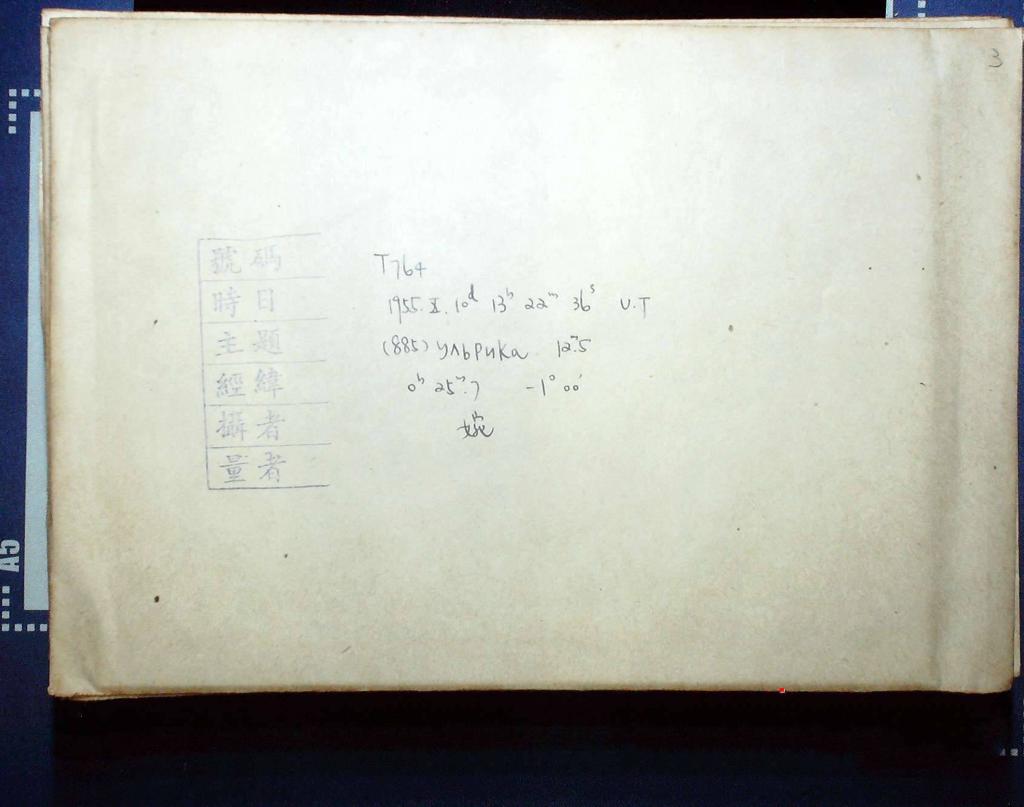 3
號碼 T764
時日 1955. X. 10ᵈ 13ʰ 22ᵐ 36ˢ U.T
主題 (885) Ульрика 12ᵐ.5
經緯 0ʰ 25ᵐ.7 -1° 00'
攝者 婉
量者
A5